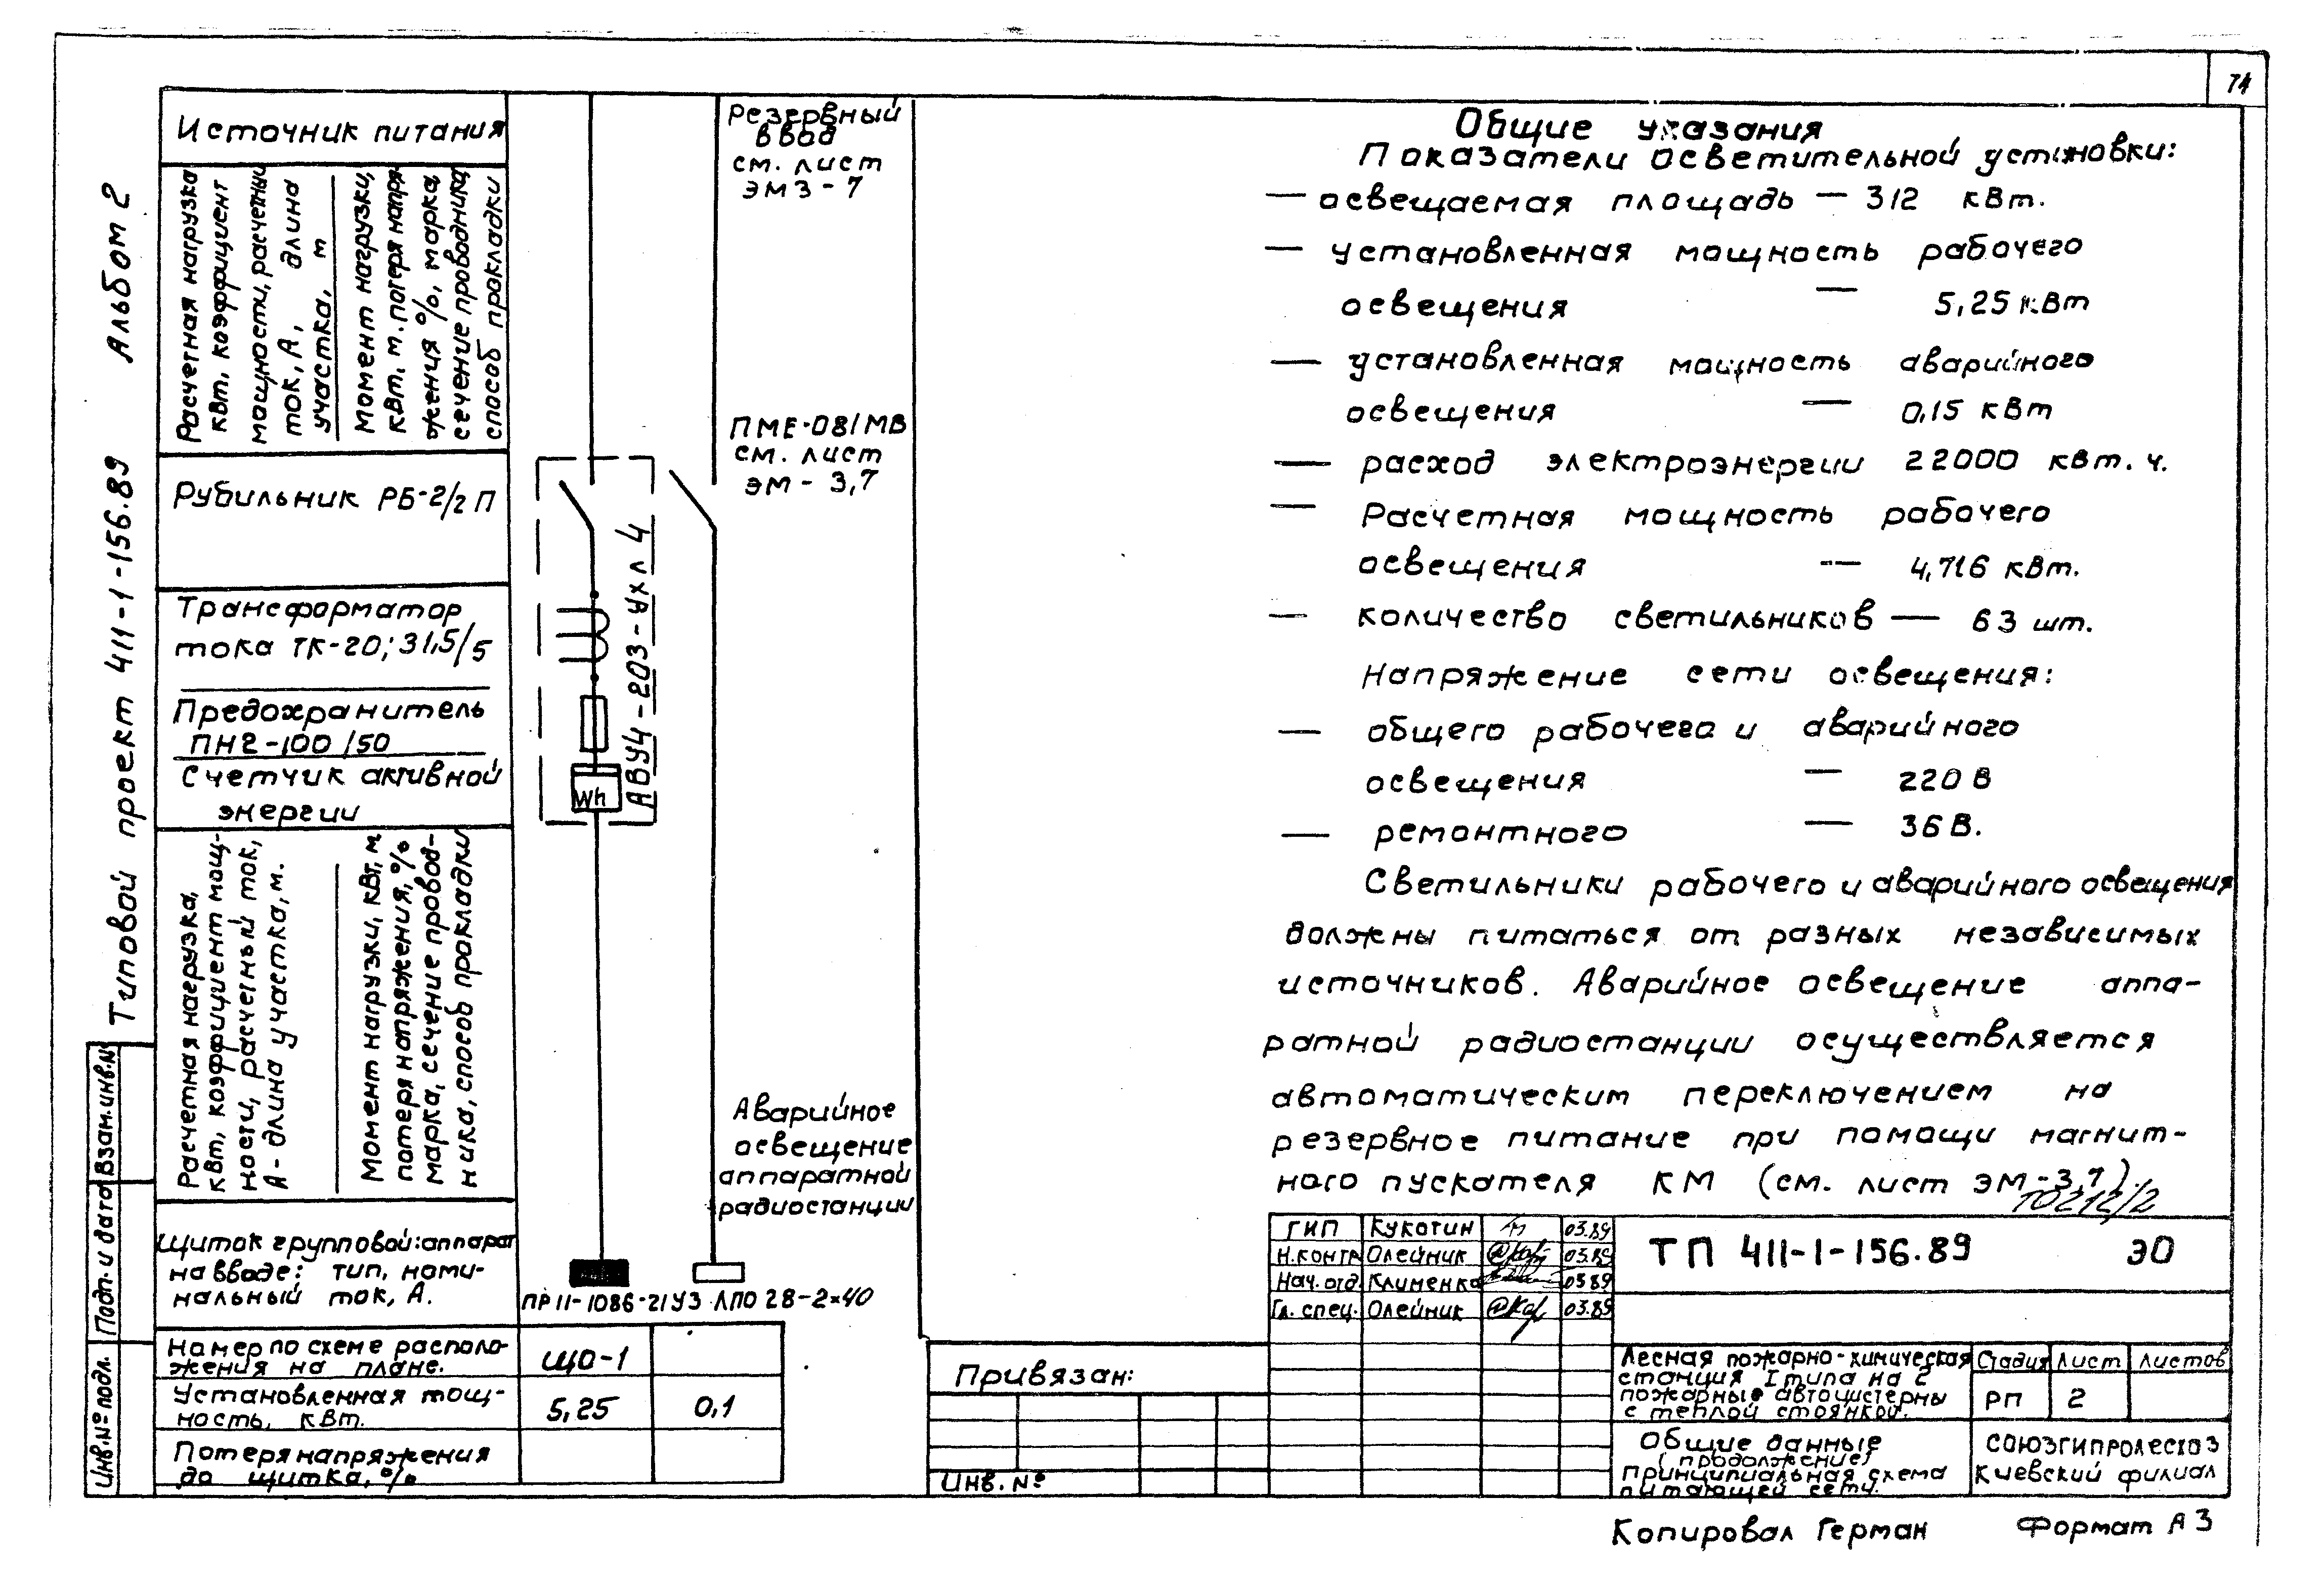 74
Альбом 2
Типовой проект 411-1-156.89
Взам.инв.№
Подп. и дата
Инв.№ подл.
Источник питания
Расчетная нагрузка
квт, коэффициент
мощности, расчетный
ток, А, длина
участка, м
Момент нагрузки,
квт. м. потеря напря-
жения %, марка,
сечение проводника,
способ прокладки
Рубильник РБ-2/2 П
Трансформатор
тока ТК-20; 31,5/5
Предохранитель
ПН2-100/50
Счетчик активной
энергии
Расчетная нагрузка,
квт, коэффициент мощ-
ности, расчетный ток,
А - длина участка, м.
Момент нагрузки, кВт, м
потеря напряжения, %
марка, сечение провод-
ника, способ прокладки
Щиток групповой: аппарат
на вводе: тип, номи-
нальный ток, А.
Номер по схеме располо-
жения на плане.
ЩО-1
Установленная мощ-
ность, квт.
5,25
0,1
Потеря напряжения
до щитка, %
Резервный
ввод
см. лист
ЭМ3-7
ПМЕ-081МВ
см. лист
ЭМ-3,7
АВУ4-203-УХЛ4
Wh
Аварийное
освещение
аппаратной
радиостанции
ПР11-1086-21У3 ЛПО 28-2×40
Общие указания
Показатели осветительной установки:
— освещаемая площадь — 312 квт.
— установленная мощность рабочего
освещения — 5,25 квт
— установленная мощность аварийного
освещения — 0,15 квт
— расход электроэнергии 22000 квт. ч.
— Расчетная мощность рабочего
освещения — 4,716 квт.
— количество светильников — 63 шт.
Напряжение сети освещения:
— общего рабочего и аварийного
освещения — 220 В
— ремонтного — 36 В.
Светильники рабочего и аварийного освещения
должны питаться от разных независимых
источников. Аварийное освещение аппа-
ратной радиостанции осуществляется
автоматическим переключением на
резервное питание при помощи магнит-
ного пускателя КМ (см. лист ЭМ-3,7).
10212/2
ГИП Кукотин 03.89
Н.контр Олейник 03.89
Нач. отд. Клименко 03.89
Гл. спец. Олейник 03.89
ТП 411-1-156.89 ЭО
Привязан:
Инв. №
Лесная пожарно-химическая
станция I типа на 2
пожарные автоцистерны
с теплой стоянкой.
Стадия Лист Листов
РП 2
Общие данные
(продолжение)
Принципиальная схема
питающей сети.
СОЮЗГИПРОЛЕСХОЗ
Киевский филиал
Копировал Герман Формат А3